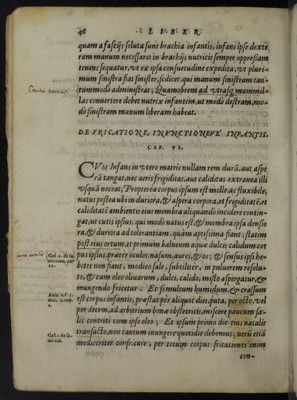 46 LIBER
quam a fascijs soluta sunt brachia infantis, infans ipse dexte
ram manum necessario in brachijs nutricis semper oppressam
tenens sequatur, ut ex ipsa consuetudine expedita, ut pluri-
mum sinistra fiat sinister, scilicet qui manum sinistram tan-
tummodo administrat; Quamobrem ad utrasq; mammil-
las convertere debet nutrix infantem, ut modo dextram, mo-
do sinistram manum liberam habeat.
DE FRICATIONE, INUNCTIONEQUE INFANTIS.
CAP. VI.
CUM Infans in vero matris nullam rem durã, aut aspe
rã tangat, nec aeris frigiditas, aut caliditas extranea illi
usquã nocerat; Propterea corpus ipsum est molle, ac fluxibile,
natus postea ubi in duriora, & aspera corpora, et frigiditatẽ, et
caliditatẽ ambientis eius membra aliquando incidere contin-
gat, ut cutis ipsius, qui modo natus est, & membra ipsa densio
ra, & duriora ad tolerantiam, quàm aptissima fiant; statim
post eius ortum, et primum balneum aquæ dulcis calidum cor
pus ipsius, præter oculos, nasum, aures, & os;
bores non fiant, modico sale, subtiliter, in pulverem resolu-
to, & cum oleo olivarum, dulci, calido, misto aspergatur, &
inungendo fricetur. Et si multum humidum, & crassum
est corpus infantis, præstat per aliquot dies, puta, per octo, vel
per decem, ad arbitrium bonæ obstetricis, miscere paucum sa-
lis contriti cum ipso oleo; Et ipsum primo die eius natalis
transacto, non tantum inungere quotidie debemus, verũ etiã
mediocriter confricare, per totum corpus fricationes enim
con-